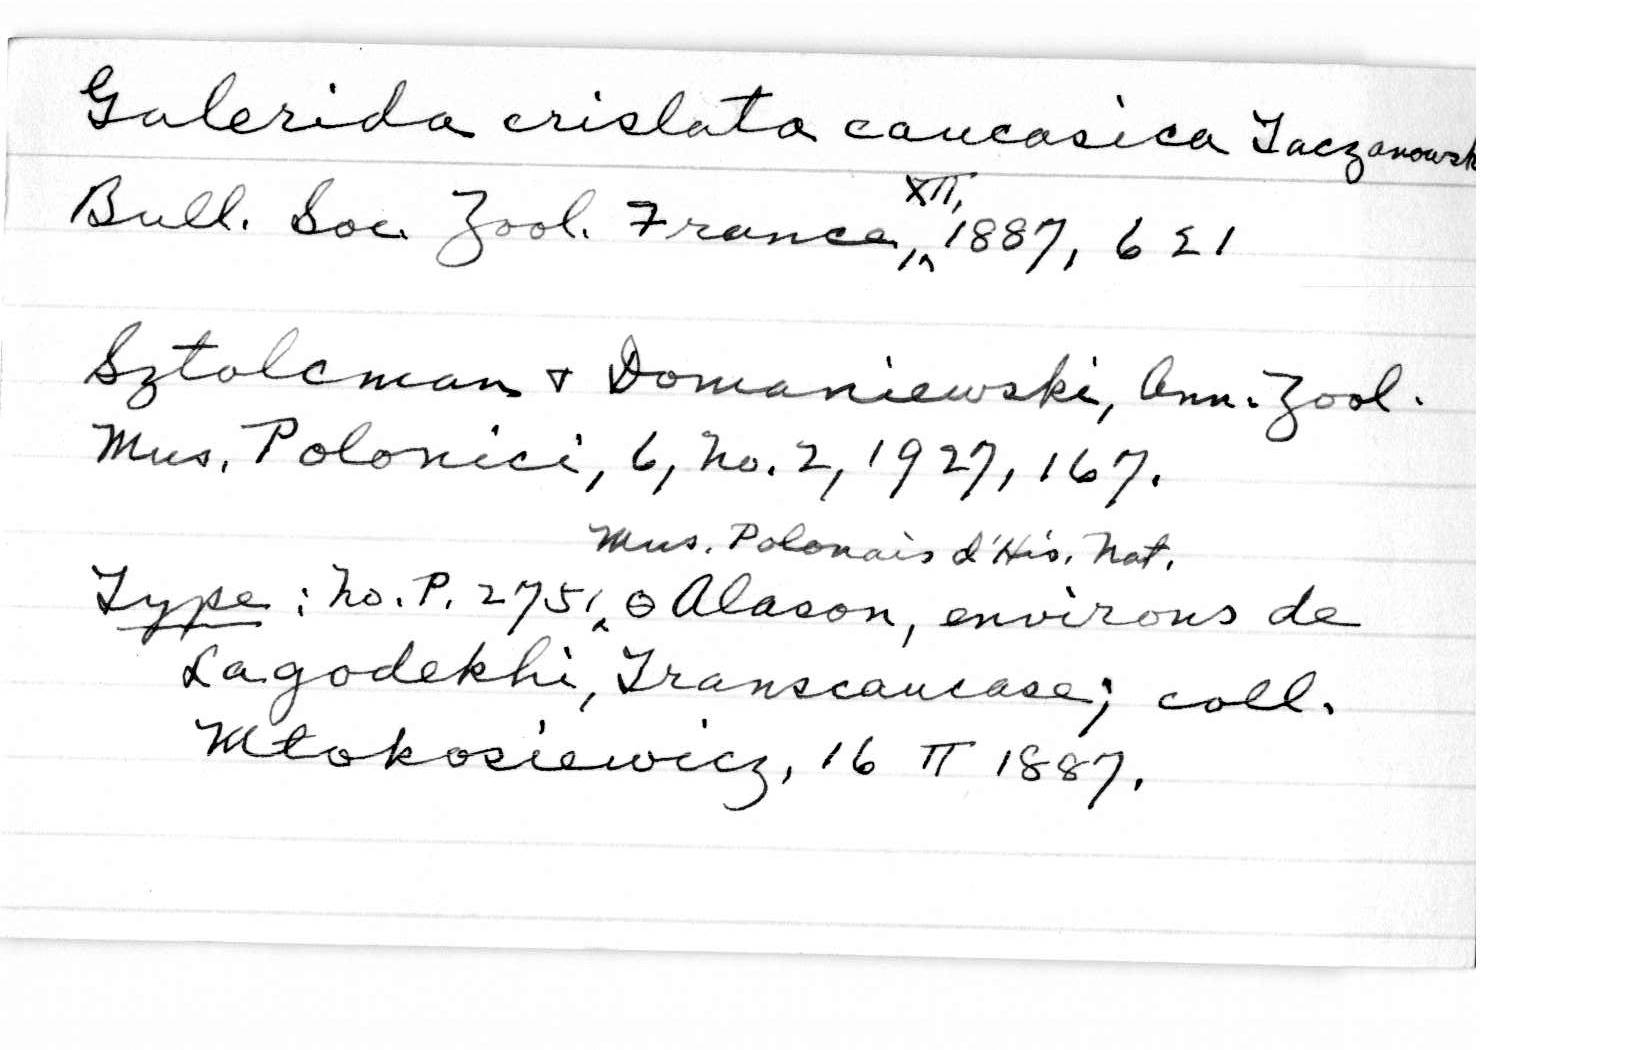 Galerida cristata caucasica Taczanowsk
Bull. Soc. Zool. France, XII, 1887, 621
Sztolcman & Domaniewski, Ann. Zool.
Mus. Polonici, 6, No. 2, 1927, 167.
Mus. Polonais d'His. Nat.
Type: No. P. 2751, ⊖ Alason, environs de
Lagodekhi, Transcaucase; coll.
Mtokosiewicz, 16 II 1887.